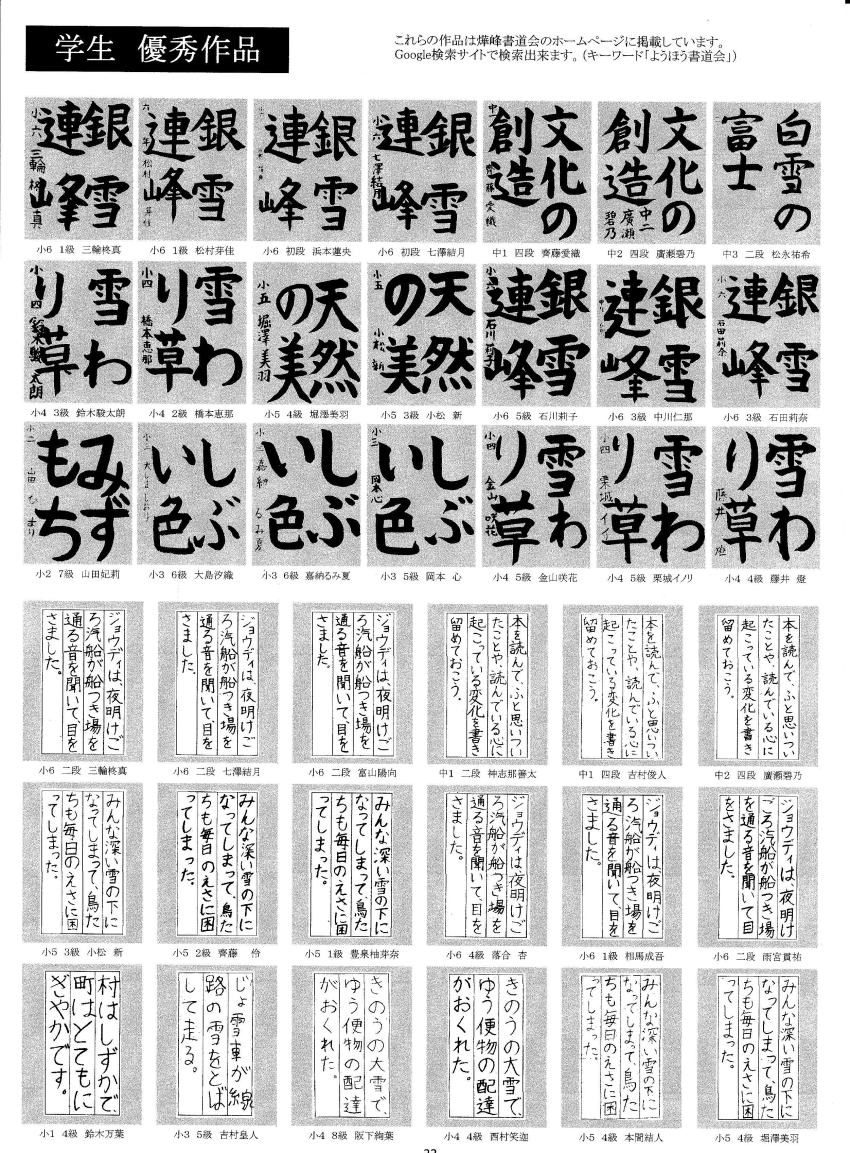 学生 優秀作品
これらの作品は燁峰書道会のホームページに掲載しています。
Google検索サイトで検索出来ます。（キーワード「ようほう書道会」）
銀雪
連峰
小六 三輪柊真
銀雪
連峰
六年 松村芽佳
銀雪
連峰
銀雪
連峰
小六 七澤結月
文化の
創造
中一 齊藤愛織
文化の
創造
中二 廣瀬碧乃
白雪の
富士
小6 1級 三輪柊真
小6 1級 松村芽佳
小6 初段 浜本蓮央
小6 初段 七澤結月
中1 四段 齊藤愛織
中2 四段 廣瀬碧乃
中3 二段 松永祐希
雪わ
り草
小四 鈴木駿太朗
雪わ
り草
小四 橋本恵那
天然
の美
小五 堀澤美羽
天然
の美
小五 小松新
銀雪
連峰
小六 石川莉子
銀雪
連峰
銀雪
連峰
小六 石田莉奈
小4 3級 鈴木駿太朗
小4 2級 橋本恵那
小5 4級 堀澤美羽
小5 3級 小松 新
小6 5級 石川莉子
小6 3級 中川仁那
小6 3級 石田莉奈
みず
もち
小二 山田ひまり
しぶ
い色
小三 大しましおり
しぶ
い色
小三 嘉納るみ夏
しぶ
い色
小三 岡本心
雪わ
り草
小四 金山咲花
雪わ
り草
小四 栗城イノリ
雪わ
り草
藤井燈
小2 7級 山田妃莉
小3 6級 大島汐織
小3 6級 嘉納るみ夏
小3 5級 岡本 心
小4 5級 金山咲花
小4 5級 栗城イノリ
小4 4級 藤井 燈
ジョウディは、夜明けご
ろ汽船が船つき場を
通る音を聞いて、目を
さました。
ジョウディは、夜明けご
ろ汽船が船つき場を
通る音を聞いて、目を
さました。
ジョウディは、夜明けご
ろ汽船が船つき場を
通る音を聞いて、目を
さました。
本を読んで、ふと思いつい
たことや、読んでいる心に
起こっている変化を書き
留めておこう。
本を読んで、ふと思いつい
たことや、読んでいる心に
起こっている変化を書き
留めておこう。
本を読んで、ふと思いつい
たことや、読んでいる心に
起こっている変化を書き
留めておこう。
小6 二段 三輪柊真
小6 二段 七澤結月
小6 二段 富山陽向
中1 二段 神志那善太
中1 四段 吉村俊人
中2 四段 廣瀬碧乃
みんな深い雪の下に
なってしまって、鳥た
ちも毎日のえさに困
ってしまった。
みんな深い雪の下に
なってしまって、鳥た
ちも毎日のえさに困
ってしまった。
みんな深い雪の下に
なってしまって、鳥た
ちも毎日のえさに困
ってしまった。
ジョウディは、夜明けご
ろ汽船が船つき場を
通る音を聞いて、目を
さました。
ジョウディは、夜明けご
ろ汽船が船つき場を
通る音を聞いて、目を
さました。
ジョウディは、夜明け
ごろ汽船が船つき場
を通る音を聞いて目
をさました。
小5 3級 小松 新
小5 2級 齊藤 伶
小5 1級 豊泉柚芽奈
小6 4級 落合 杏
小6 1級 相馬成吾
小6 二段 雨宮貫祐
村はしずかで、
町はとてもに
ぎやかです。
じょ雪車が線
路の雪をとば
して走る。
きのうの大雪で、
ゆう便物の配達
がおくれた。
きのうの大雪で、
ゆう便物の配達
がおくれた。
みんな深い雪の下に
なってしまって、鳥た
ちも毎日のえさに困
ってしまった。
みんな深い雪の下に
なってしまって、鳥た
ちも毎日のえさに困
ってしまった。
小1 4級 鈴木万葉
小3 5級 吉村皇人
小4 8級 阪下絢葉
小4 4級 西村笑迦
小5 4級 本間結人
小5 4級 堀澤美羽